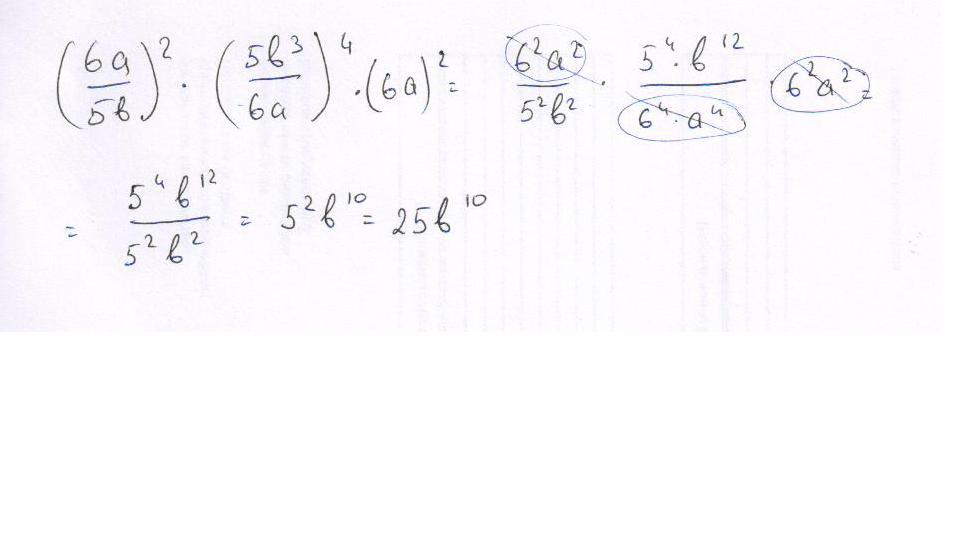 (6a/5b)² · (5b³/6a)⁴ · (6a)² = 6²a²/5²b² · 5⁴·b¹²/6⁴·a⁴ · 6²a² =
= 5⁴b¹²/5²b² = 5²b¹⁰ = 25b¹⁰